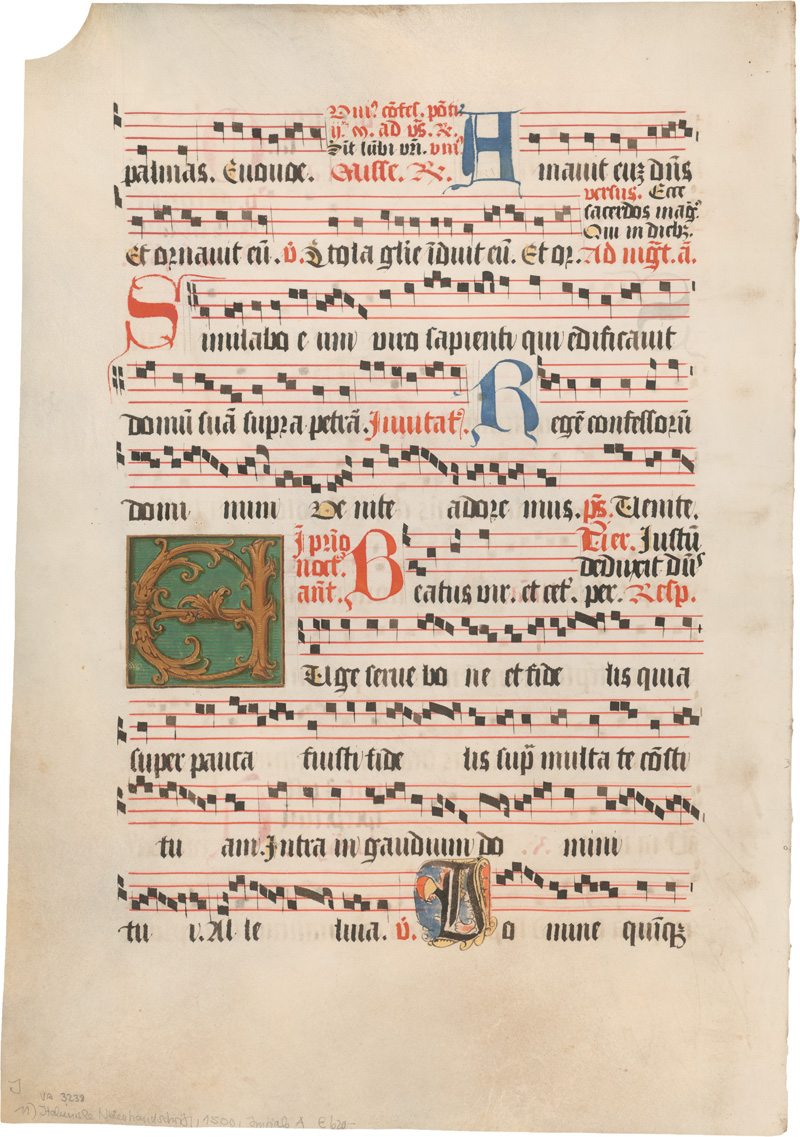 Uni⁹ cōfes. pōti
ij. m. ad ps. R.
Sīt lūbi vri. vnī⁹
palmas. Euouoe. Misse. R. Amauit euȝ dn̄s
versus. Ecce
sacerdos mag⁹.
Qui in diebȝ.
Et ornauit eū. v̄. Stola gl̄ie īduit eū. Et or. Ad mḡt. ā.
Similabo e um viro sapienti qui edificauit
domū suā supra petrā. Inuitat. Regē confessorū
domi num Ve nite adore mus. p̄s. Uenite.
I prīo
noct.
ant. Beatus vir. et cet. per. Resp.
Ver. Iustū
deduxit dn̄s
EUge serue bo ne et fide lis quia
super pauca fuisti fide lis sup̄ multa te cōsti
tu am. Intra in gaudium do mini
tu i. Al le luia. v̄. Do mine quinqȝ
J
VA 3238
1500, Initiale A